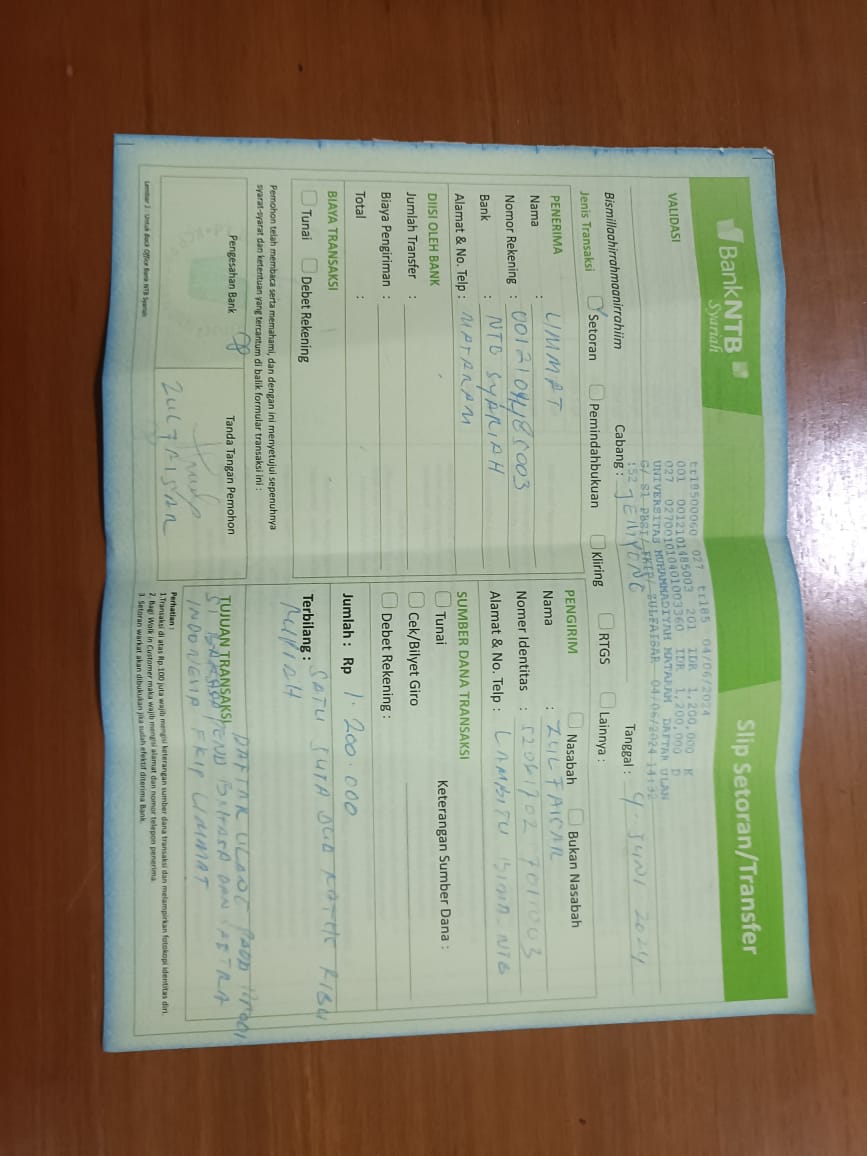 BankNTB
Syariah
Slip Setoran/Transfer
VALIDASI
tr18500060 027 tr185 04/06/2024
001 0012101485003 201 IDR 1,200,000 K
027 027001010401003360 IDR 1,200,000 D
UNIVERSITAS MUHAMMADIYAH MATARAM DAFTAR ULAN
G/ S1 PBSI/ FKIP/ ZULFAISAR 04/06/2024 14:32
:52
Bismillaahirrahmaanirrahiim
Cabang : JENIYENG
Tanggal : 4 - JUNI 2024
Jenis Transaksi Setoran Pemindahbukuan Kliring RTGS Lainnya :
PENERIMA
Nama : UMMAT
Nomor Rekening : 0012101485003
Bank : NTB SYARIAH
Alamat & No. Telp : MATARAM
PENGIRIM Nasabah Bukan Nasabah
Nama : ZULFAISAR
Nomer Identitas :
Alamat & No. Telp : LAMBITU BIMA - NTB
DIISI OLEH BANK
Jumlah Transfer :
Biaya Pengiriman :
Total :
SUMBER DANA TRANSAKSI
Tunai Keterangan Sumber Dana :
Cek/Bilyet Giro
Debet Rekening :
BIAYA TRANSAKSI
Tunai Debet Rekening
Jumlah : Rp 1.200.000
Terbilang : SATU JUTA DUA RATUS RIBU
RUPIAH
Pemohon telah membaca serta memahami, dan dengan ini menyetujui sepenuhnya
syarat-syarat dan ketentuan yang tercantum di balik formular transaksi ini :
Pengesahan Bank
Tanda Tangan Pemohon
ZULFAISAR
TUJUAN TRANSAKSI
DAFTAR ULANG PADA PRODI
S1 PEND BAHASA DAN SASTRA
INDONESIA FKIP UMMAT
Perhatian :
1. Transaksi di atas Rp. 100 juta wajib mengisi keterangan sumber dana transaksi dan melampirkan fotokopi identitas diri.
2. Bagi Walk in Customer maka wajib mengisi alamat dan nomor telepon penerima.
3. Setoran warkat akan dibukukan jika sudah efektif diterima Bank.
Lembar 1 : Untuk Back Office Bank NTB Syariah